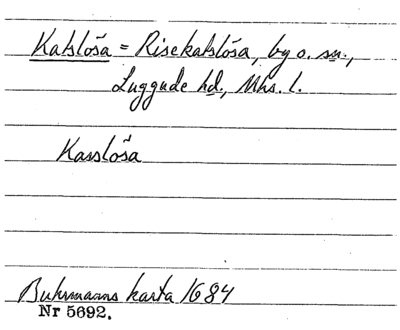 Katslösa = Risekatslösa, by o. sn.,
Luggude hd., Mhs. l.
Kasslösa
Buhrmanns karta 1684
Nr 5692.